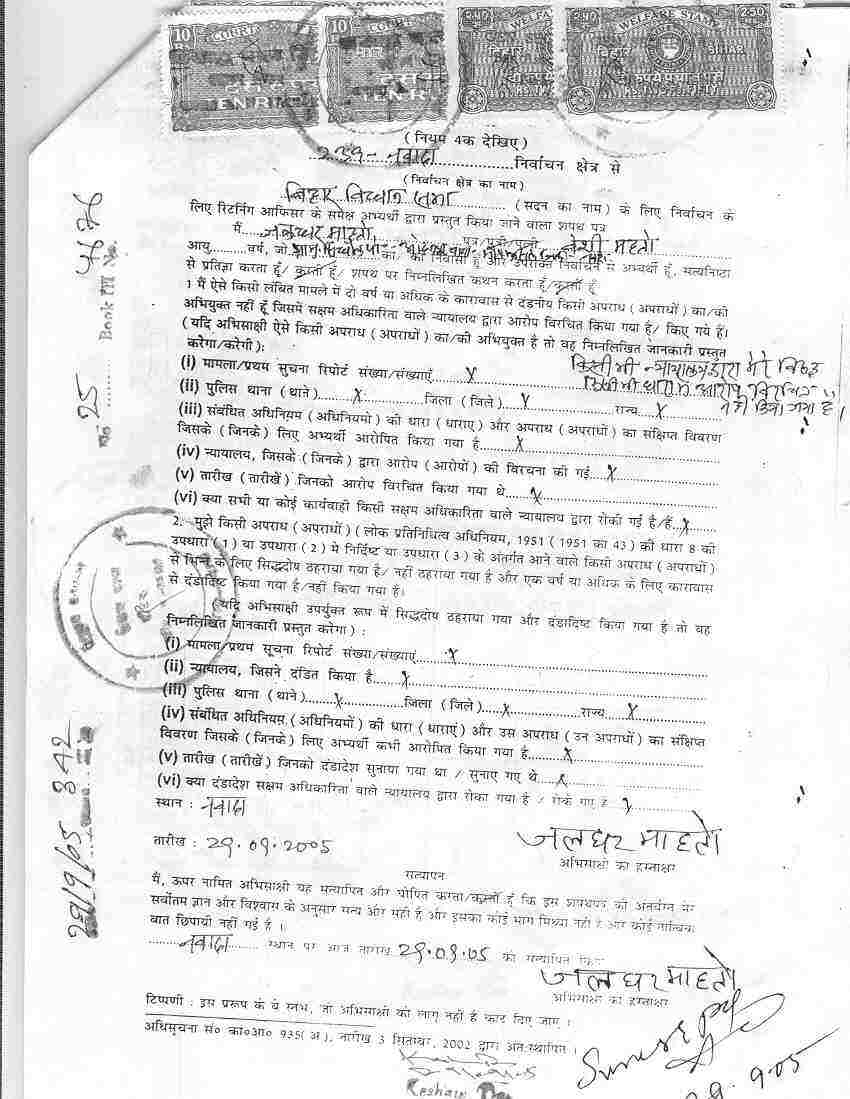 10
COURT
10
COURT
WELFARE
WELFARE STAMP
बिहार
BIHAR
( नियम 4क देखिए )
नवादा निर्वाचन क्षेत्र से
( निर्वाचन क्षेत्र का नाम )
बिहार विधान सभा ( सदन का नाम ) के लिए निर्वाचन के
लिए रिटर्निंग आफिसर के समक्ष अभ्यर्थी द्वारा प्रस्तुत किया जाने वाला शपथ पत्र
मैं महतो पुत्र/पुत्री/पत्नी महतो
आयु वर्ष, जो का/ की निवासी हूँ और उपरोक्त निर्वाचन से अभ्यर्थी हूँ, सत्यनिष्ठा
से प्रतिज्ञा करता हूँ/ करती हूँ/ शपथ पर निम्नलिखित कथन करता हूँ/करती हूँ
1 मैं ऐसे किसी लंबित मामले में दो वर्ष या अधिक के कारावास से दंडनीय किसी अपराध ( अपराधों ) का/की
अभियुक्त नहीं हूँ जिसमें सक्षम अधिकारिता वाले न्यायालय द्वारा आरोप विरचित किया गया है/ किए गये हैं।
( यदि अभिसाक्षी ऐसे किसी अपराध ( अपराधों ) का/की अभियुक्त है तो वह निम्नलिखित जानकारी प्रस्तुत
करेगा/करेगी ) :
(i) मामला/प्रथम सुचना रिपोर्ट संख्या/संख्याएं X किसी भी न्यायालय द्वारा मेरे विरुद्ध
किसी भी धारा में आरोप विरचित
(ii) पुलिस थाना ( थाने ) X जिला ( जिले ) X राज्य X नहीं किया गया है।
(iii) संबंधित अधिनियम ( अधिनियमो ) की धारा ( धाराए ) और अपराध ( अपराधों ) का संक्षिप्त विवरण
जिसके ( जिनके ) लिए अभ्यर्थी आरोपित किया गया है X
(iv) न्यायालय, जिसके ( जिनके ) द्वारा आरोप ( आरोपों ) की विरचना की गई X
(v) तारीख ( तारीखें ) जिनको आरोप विरचित किया गया थे X
(vi) क्या सभी या कोई कार्यवाही किसी सक्षम अधिकारिता वाले न्यायालय द्वारा रोकी गई है/हैं X
2. मुझे किसी अपराध ( अपराधों ) ( लोक प्रतिनिधित्व अधिनियम, 1951 ( 1951 का 43 ) की धारा 8 की
उपधारा ( 1 ) या उपधारा ( 2 ) मे निर्दिष्ट या उपधारा ( 3 ) के अंतर्गत आने वाले किसी अपराध ( अपराधों )
से भिन्न के लिए सिद्धदोष ठहराया गया है/ नहीं ठहराया गया है और एक वर्ष या अधिक के लिए कारावास
से दंडादिष्ट किया गया है/नहीं किया गया है।
( यदि अभिसाक्षी उपर्युक्त रूप में सिद्धदोष ठहराया गया और दंडादिष्ट किया गया है तो वह
निम्नलिखित जानकारी प्रस्तुत करेगा ) :
(i) मामला/प्रथम सूचना रिपोर्ट संख्या/संख्याएं X
(ii) न्यायालय, जिसने दंडित किया है X
(iii) पुलिस थाना ( थाने ) X जिला ( जिले ) X राज्य X
(iv) संबंधित अधिनियम ( अधिनियमों ) की धारा ( धाराएं ) और उस अपराध ( उन अपराधों ) का संक्षिप्त
विवरण जिसके ( जिनके ) लिए अभ्यर्थी कभी आरोपित किया गया है X
(v) तारीख ( तारीखें ) जिनको दंडादेश सुनाया गया था / सुनाए गए थे X
(vi) क्या दंडादेश सक्षम अधिकारिता वाले न्यायालय द्वारा रोका गया है / रोके गए है X
स्थान : नवादा
तारीख : 29.09.2005
जलधर माहतो
अभिसाक्षी का हस्ताक्षर
सत्यापन
मैं, ऊपर नामित अभिसाक्षी यह सत्यापित और घोषित करता/करती हूँ कि इस शपथपत्र की अन्तर्वस्तु मेरे
सर्वोतम ज्ञान और विश्वास के अनुसार सत्य और सही है और इसका कोई भाग मिथ्या नहीं है और कोई तात्विक
बात छिपायी नहीं गई है ।
नवादा स्थान पर आज तारीख 29.09.05 को सत्यापित किया
जलधर माहतो
अभिसाक्षी का हस्ताक्षर
टिप्पणी : इस प्ररूप के वे स्तंभ, जो अभिसाक्षी को लागू नहीं है काट दिए जाए ।
अधिसूचना सं० का०आ० 935( अ ), तारीख 3 सितम्बर, 2002 द्वारा अंतःस्थापित ।
Keshaw
29.9.05
No 25 Book III No.
29/9/05 342